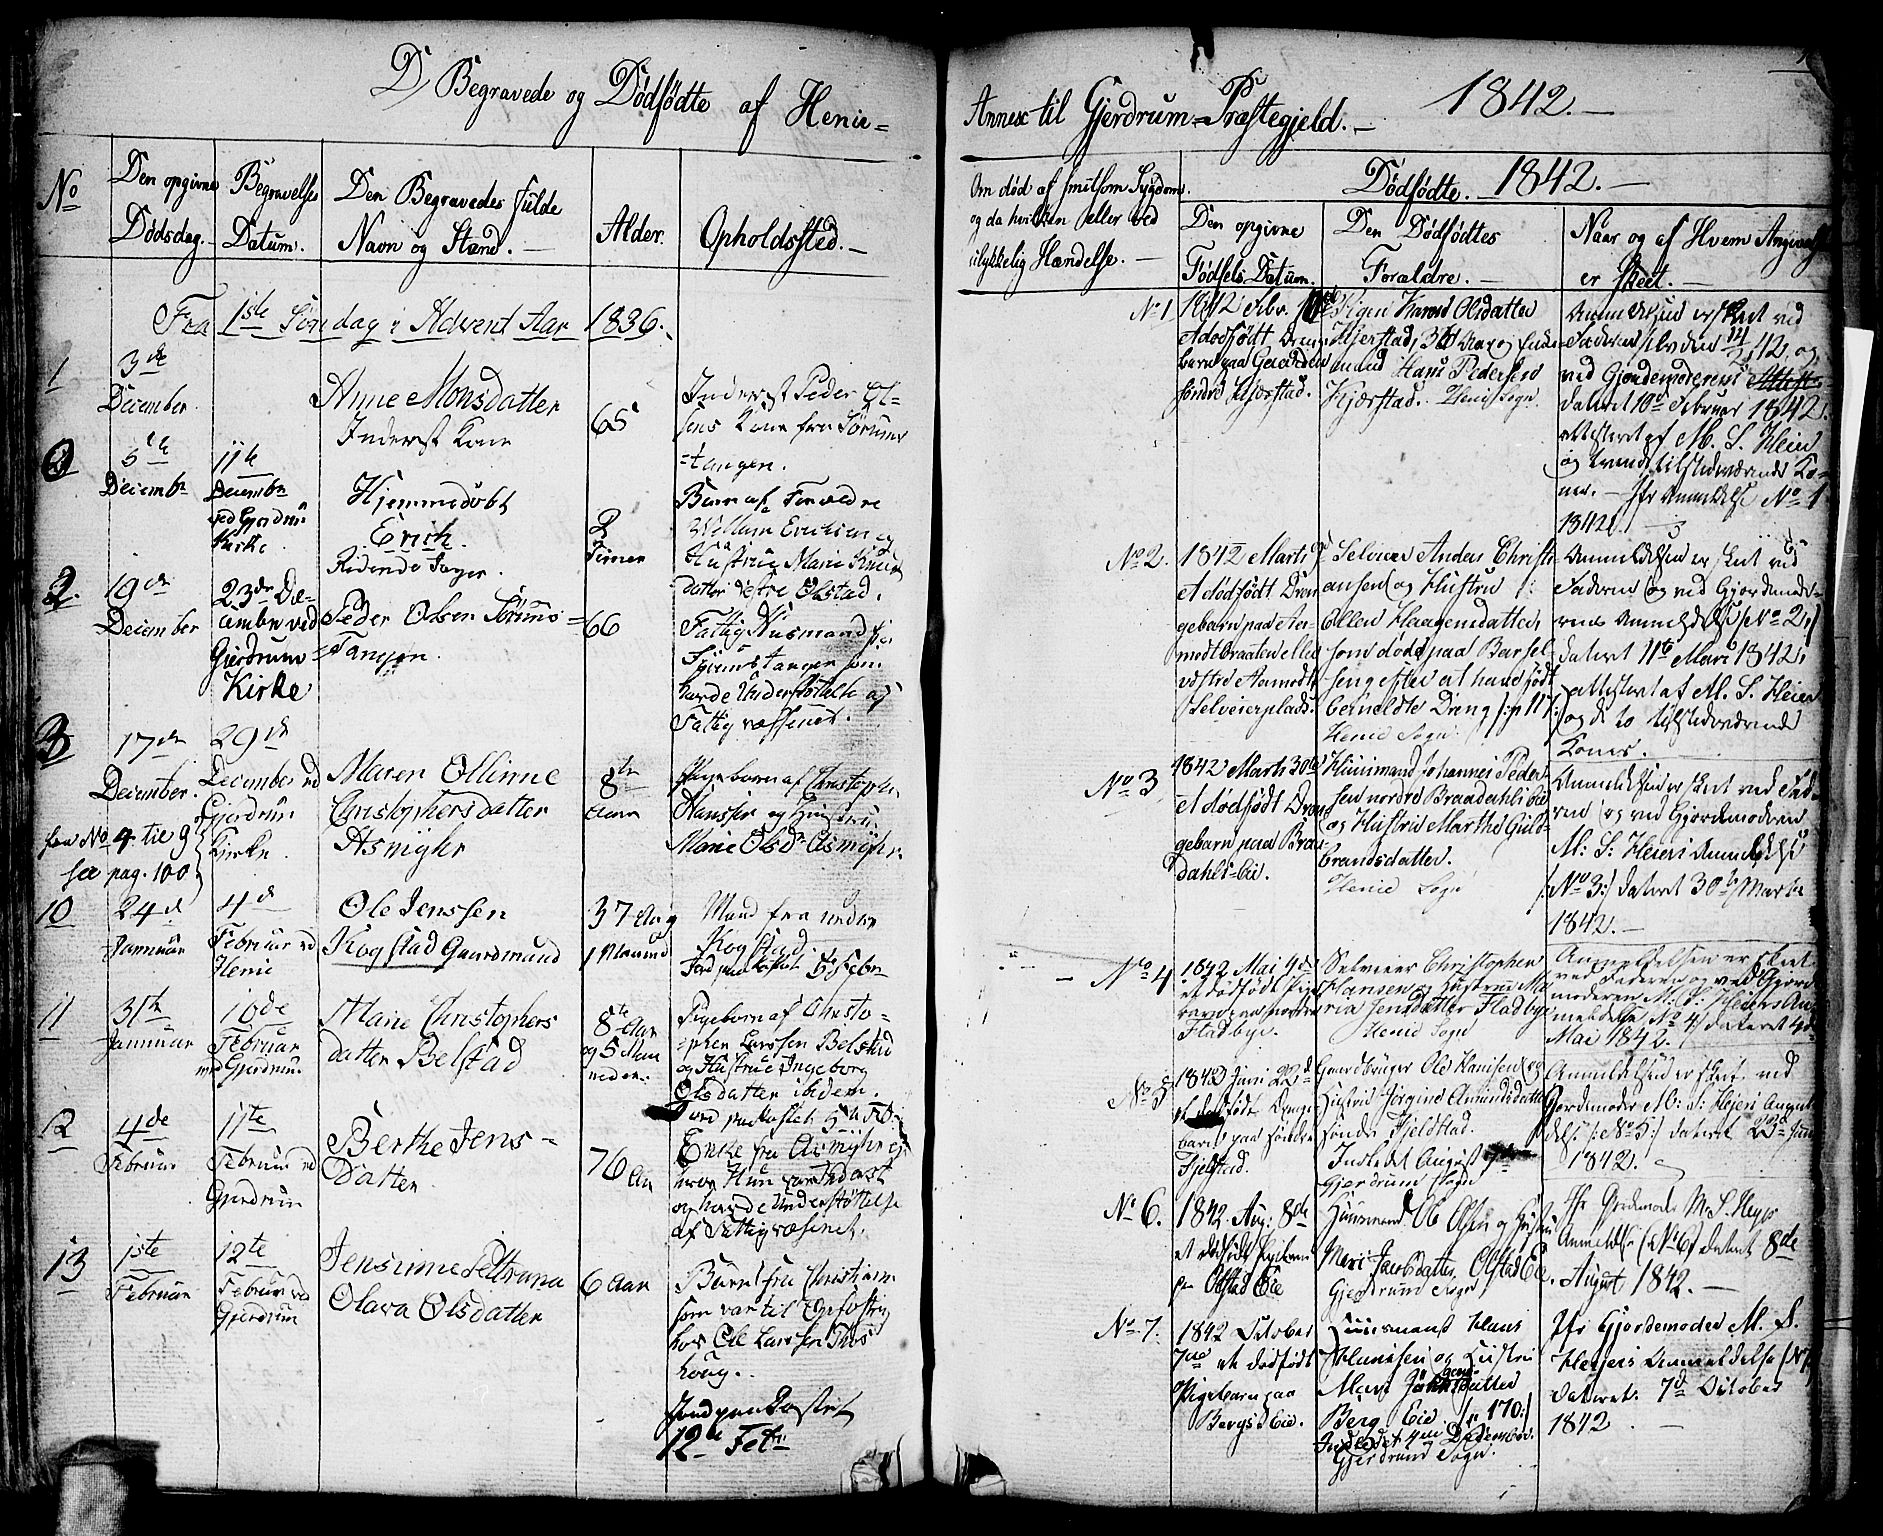 D, Begravede og Dödfödte af Henie=
No
Den opgivne Dödsdag.
Begravelses Datum.
Den Begravedes fulde Navn og Stand.
Alder.
Opholdssted.
Fra 1ste Söndag i Advent Aar 1836.
1
3de December
Anne Monsdatter
Inderst Kone
65
Inderst Peder Ol-
sens Kone fra Sörums
=tangen.
2
5te December
11te December
ved Gjerdrum
Kirke
Hjemmedöbt
Erich.
2
Timer
Barn af Forældre
Willum Erichsen og
Hustrue Marie Knud
datter vestre Olstad.
2.
19de December
23de De-
cember ved
Gjerdrum=
Kirke
Peder Olsen Sörums=
Tangen.
66
Fattig Husmand fra
Sörumstangen som
havde Understöttelse af
Fattigvæsenet.
3
17de December.
29de December ved
Gjerdrum
Kirke.
Maren Olline
Christophersdatter
Asmyhr
8te
Aar
Pigebarn af Christopher
Hanssen og Hustrue
Marie Olsdr Asmyhr.
fra No 4 til 9
see pag. 100
10
24de Januar
4de Februar ved
Henie
Ole Jenssen
Kogstad Gaardmand
37 Aar
1 Maaned
Mand fra nedre
Kogstad.
Jord paakastet 5te Febr
11
31te Januar
10de Februar
ved Gjerdrum
Marie Christophers
datter Belstad
8te Aar
og 5 Maa
neder
Pigebarn af Christo-
pher Larssen Belstad
og Hustrue Ingeborg
Olsdatter ibidem.
Jord paakastet 5te Feb.
12
4de Februar
11te Februar ved
Gjerdrum
Berthe Jens=
Datter
76 Aar
Enke fra Asmyhr
hvor Hun var Inderst
og havde Understöttelse
af Fattigvæsenet.
13
1ste Februar
12te Februar ved
Gjerdrum
Jensinne Peltrana
Olava Olsdatter
6 Aar
Barn fra Christiania
som var til Opfostring
hos Ole Larssen Thos
houg.
Jord paakastet
12te Feb.
Annex til Gjerdrum=Præstegjeld. 1842.
Om död af smitsom Sygdom
og da hvilken eller ved
ulykkelig Hændelse.
Dödfödte. 1842.
Den opgivne
Födsels Datum.
Den Dödfödtes
Forældre.
Naar og af Hvem Angivelse
er skeet.
No 1
1842 Febr.
et dödfödt Drenge
barn paa Gaarden
söndre Kjærstad.
Pigen Karen Olsdatter
Kjerstad, Aar og
med Hans Pedersen
Kjærstad. Henie Sogn.
Anmeldelsen er skeet ved
Faderen selv den 42, og
ved Gjordemoderens
dateret 10de Februar 1842.
attesteret af M. S. Heien
og tvende tilstedeværende Ko-
ner. Jfr Anmeldelse No 1
1842.
No 2.
1842 Marts
et dödfödt Dren
gebarn paa Aa-
modtbraaten eller
vestre Aamodt
Selveierplads.
Selveier Anders Christi
ansen og Hustru
Ellen Haagensdatter,
som döde paa Barsel
seng efter at have födt
bemeldte Dreng
Henie Sogn.
Anmeldelsen er skeet ved
Faderen og ved Gjordemode-
rens Anmeldelse No 2,
dateret 11te Marts 1842,
attesteret af M. S. Heien
og de to tilstedeværende
Koner.
No 3
1842 Marts 30te
et dödfödt Dren
gebarn paa Braa
dahls-Eie.
Huusmand Johannes Peder
sen nordre Braadahls Eie
og Hustrue Marthe Guld-
brandsdatter.
Henie Sogn
Anmeldelsen er skeet ved Fad-
eren og ved Gjordemoderen
M: S: Heiens Anmeldelse
No 3:) dateret 30te Marts
1842.
No 4
1842 Mai 4de
et dödfödt Pige
barn paa nordre
Fladbye.
Selveier Christopher
Hansen og Hustrue Ma
ria Jensdatter Fladbye
Henie Sogn
Anmeldelsen er skeet
ved Faderen og ved Gjorde
moderen M: S: Heiens An
meldelse No 4 dateret 4de
Mai 1842.
No 5
1842 Juni 22de
et dödfödt Drenge
barn paa söndre
Fjelstad.
Gaardbruger Ole Hansen og
Hustrue Jörgine Amundsdatter
söndre Fjeldstad.
Indledet August
Gjerdrum Sogn
Anmeldelsen er skeet ved
Gjordemoder M: S: Heiens Anmel
delse No 5:) dateret 23de Juni
1842.
No 6.
1842 Aug: 8de
et dödfödt Pigebarn
paa Olstad Eie
Huusmand Ole Olsen og Hustru
Mari Jacobsdatter, Olstad Eie,
Gjerdrum Sogn
Jfr Gjordemoder M. S. Heyes
Anmeldelse (No 6) dateret 8de
August 1842.
No 7.
1842 October
7de et dödfödt
Pigebarn paa
Bergs Eie.
Huusmand Hans
Hansen og Hustru
Mari datter
Berg Eie (: 170:)
Indledet 4de December.
Gjerdrum Sogn.
Jfr Gjordemoder M. S.
Heiens Anmeldelse (N 7)
dateret 7de October
1842